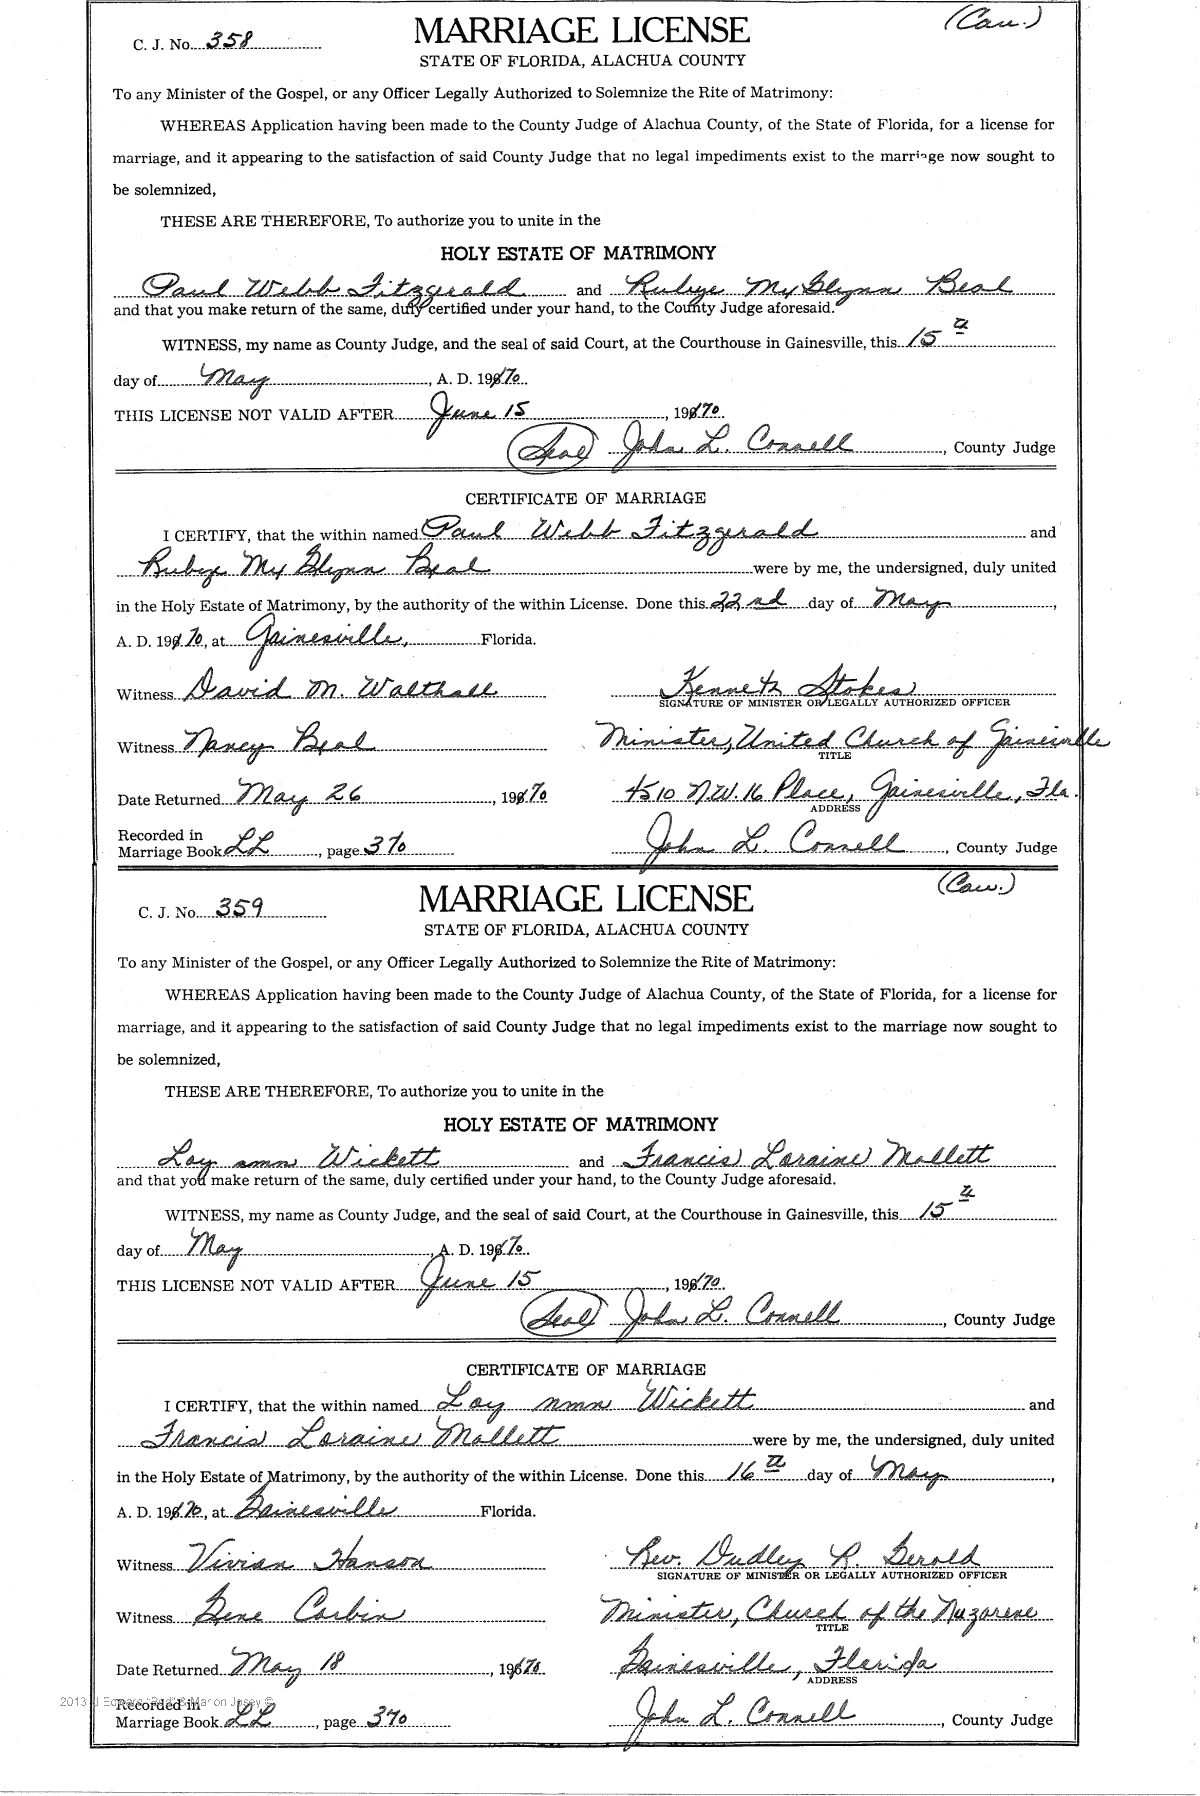 C. J. No. 358 MARRIAGE LICENSE (Cau.)
STATE OF FLORIDA, ALACHUA COUNTY
To any Minister of the Gospel, or any Officer Legally Authorized to Solemnize the Rite of Matrimony:
WHEREAS Application having been made to the County Judge of Alachua County, of the State of Florida, for a license for
marriage, and it appearing to the satisfaction of said County Judge that no legal impediments exist to the marriage now sought to
be solemnized,
THESE ARE THEREFORE, To authorize you to unite in the
HOLY ESTATE OF MATRIMONY
Paul Webb Fitzgerald and Rubye McGlynn Beal
and that you make return of the same, duly certified under your hand, to the County Judge aforesaid.
WITNESS, my name as County Judge, and the seal of said Court, at the Courthouse in Gainesville, this 15th
day of May, A. D. 1970.
THIS LICENSE NOT VALID AFTER June 15, 1970
(Seal) John L. Connell, County Judge
CERTIFICATE OF MARRIAGE
I CERTIFY, that the within named Paul Webb Fitzgerald and
Rubye McGlynn Beal were by me, the undersigned, duly united
in the Holy Estate of Matrimony, by the authority of the within License. Done this 22nd day of May,
A. D. 1970, at Gainesville, Florida.
Witness David M. Walthall Kenneth Stokes
SIGNATURE OF MINISTER OR LEGALLY AUTHORIZED OFFICER
Witness Nancy Beal Minister, United Church of Gainesville
TITLE
Date Returned May 26, 1970 4510 N.W. 16 Place, Gainesville, Fla.
ADDRESS
Recorded in
Marriage Book LL, page 370 John L. Connell, County Judge
C. J. No. 359 MARRIAGE LICENSE (Cau.)
STATE OF FLORIDA, ALACHUA COUNTY
To any Minister of the Gospel, or any Officer Legally Authorized to Solemnize the Rite of Matrimony:
WHEREAS Application having been made to the County Judge of Alachua County, of the State of Florida, for a license for
marriage, and it appearing to the satisfaction of said County Judge that no legal impediments exist to the marriage now sought to
be solemnized,
THESE ARE THEREFORE, To authorize you to unite in the
HOLY ESTATE OF MATRIMONY
Loy nmn Wickett and Francis Loraine Mallett
and that you make return of the same, duly certified under your hand, to the County Judge aforesaid.
WITNESS, my name as County Judge, and the seal of said Court, at the Courthouse in Gainesville, this 15th
day of May, A. D. 1970.
THIS LICENSE NOT VALID AFTER June 15, 1970.
(Seal) John L. Connell, County Judge
CERTIFICATE OF MARRIAGE
I CERTIFY, that the within named Loy nmn Wickett and
Francis Loraine Mallett were by me, the undersigned, duly united
in the Holy Estate of Matrimony, by the authority of the within License. Done this 16th day of May,
A. D. 1970, at Gainesville Florida.
Witness Vivian Hanson Rev. Dudley R. Gerald
SIGNATURE OF MINISTER OR LEGALLY AUTHORIZED OFFICER
Witness Gene Corbin Minister, Church of the Nazarene
TITLE
Date Returned May 18, 1970 Gainesville, Florida
ADDRESS
Recorded in
Marriage Book LL, page 370 John L. Connell, County Judge